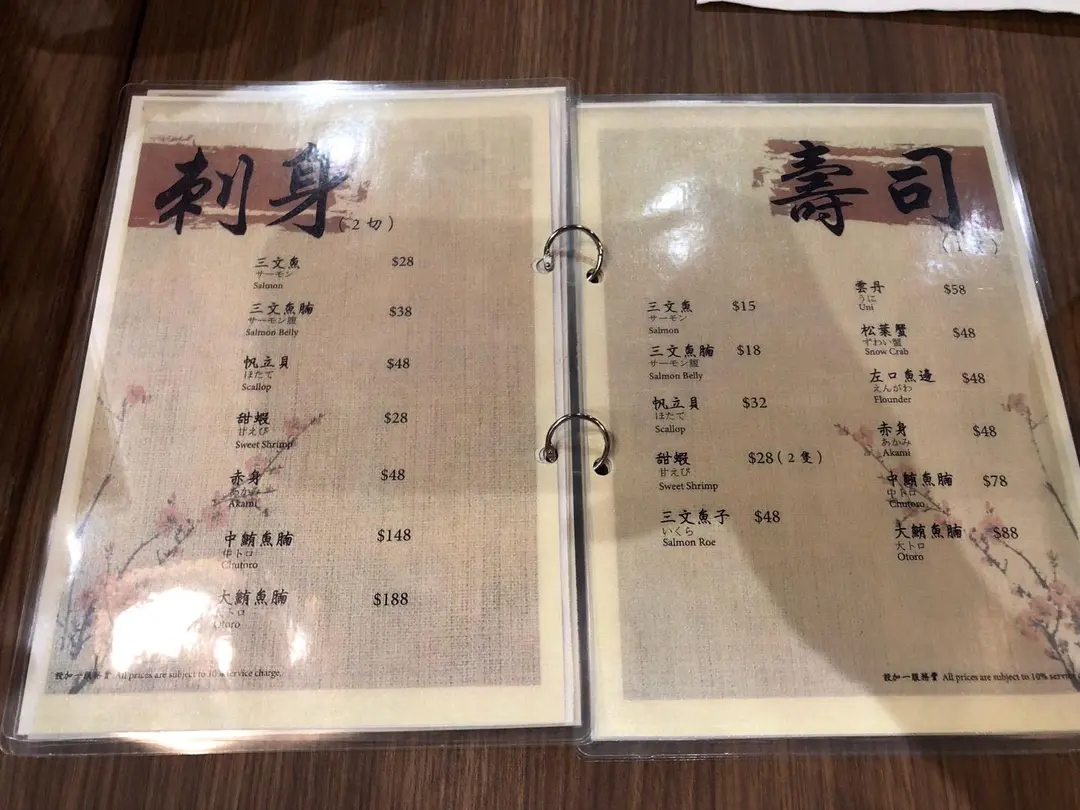 刺身
(2切)
三文魚 $28
サーモン
Salmon
三文魚腩 $38
サーモン腹
Salmon Belly
帆立貝 $48
ほたて
Scallop
甜蝦 $28
甘えび
Sweet Shrimp
赤身 $48
あかみ
Akami
中鮪魚腩 $148
中トロ
Chutoro
大鮪魚腩 $188
大トロ
Otoro
設加一服務費 All prices are subject to 10% service charge.
壽司
三文魚 $15
サーモン
Salmon
三文魚腩 $18
サーモン腹
Salmon Belly
帆立貝 $32
ほたて
Scallop
甜蝦 $28(2隻)
甘えび
Sweet Shrimp
三文魚子 $48
いくら
Salmon Roe
雲丹 $58
うに
Uni
松葉蟹 $48
ずわい蟹
Snow Crab
左口魚邊 $48
えんがわ
Flounder
赤身 $48
あかみ
Akami
中鮪魚腩 $78
中トロ
Chutoro
大鮪魚腩 $88
大トロ
Otoro
設加一服務費 All prices are subject to 10%